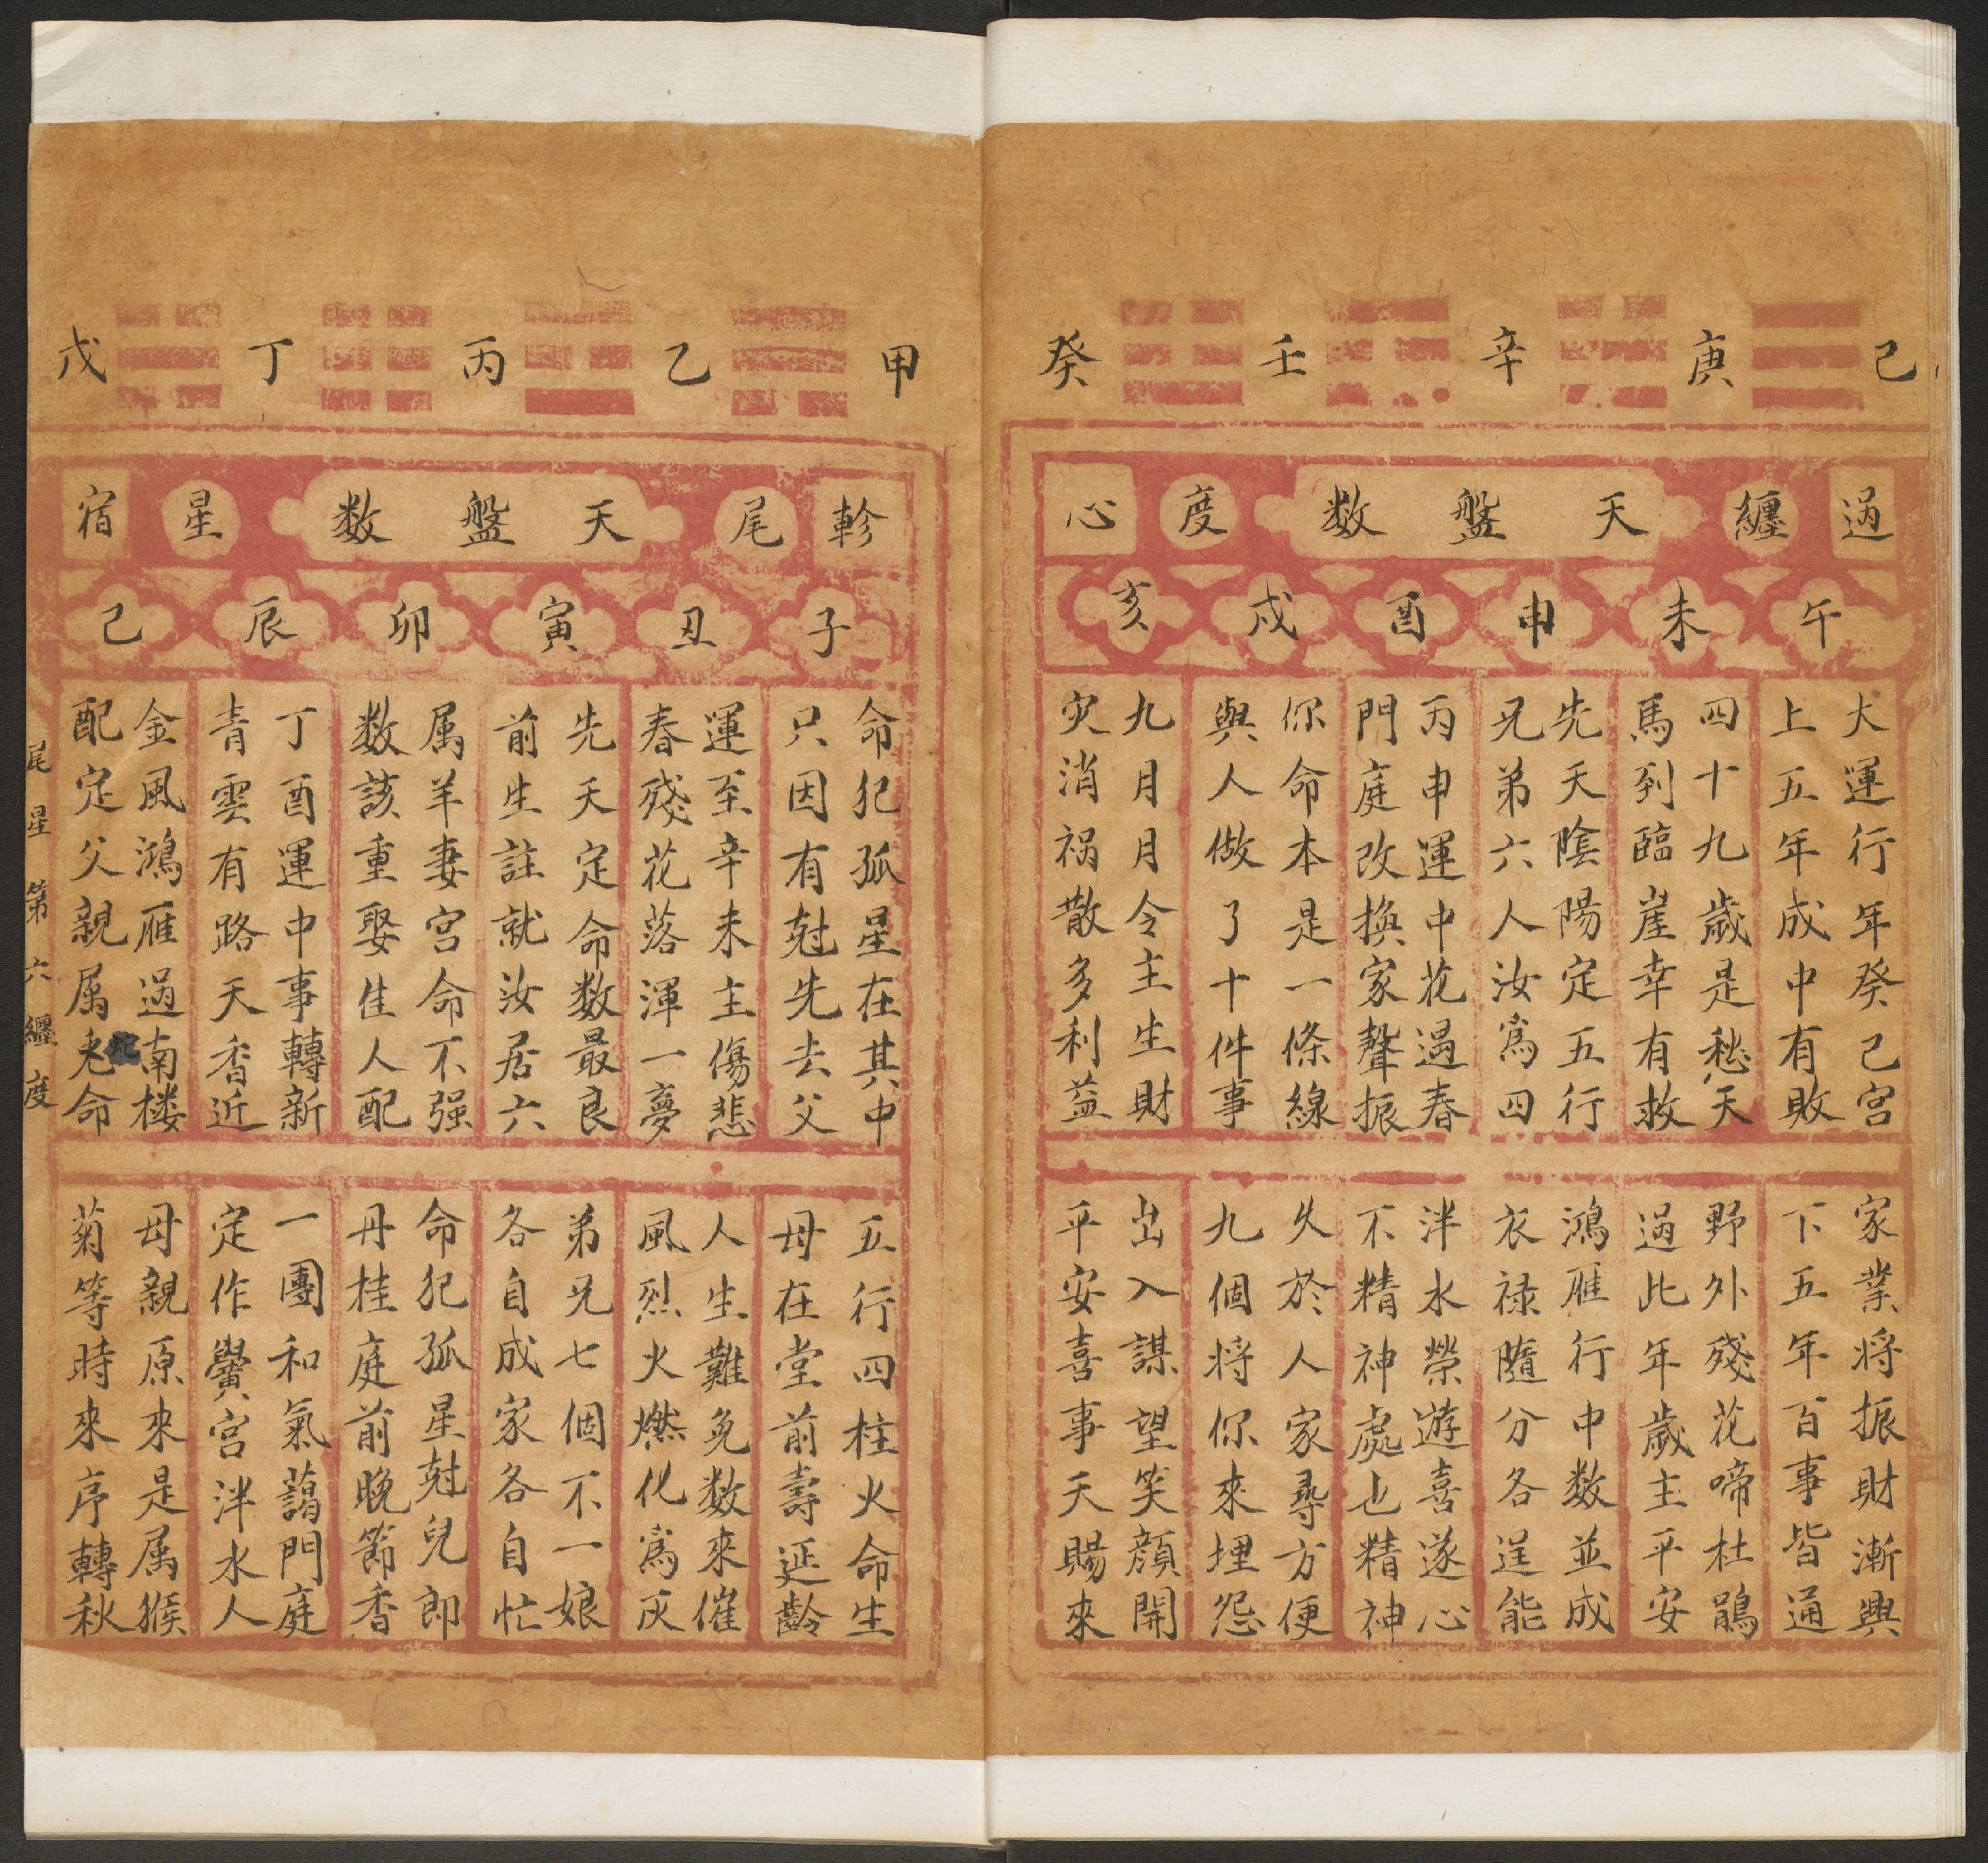 己 庚 辛 壬 癸
過 纏 天盤数 度 心
午 未 申 酉 戌 亥
大運行年癸己宮
上五年成中有敗
四十九歲是愁天
馬到臨崖幸有救
先天陰陽定五行
兄弟六人汝為四
丙申運中花遇春
門庭改換家聲振
你命本是一條線
與人做了十件事
九月月令主生財
灾消祸散多利益
家業将振財漸興
下五年百事皆通
野外殘花啼杜鵑
過此年歲主平安
鴻雁行中数並成
衣禄隨分各逞能
泮水榮遊喜遂心
不精神處也精神
久於人家尋方便
九個将你來埋怨
出入謀望笑顏開
平安喜事天賜來
甲 乙 丙 丁 戊
軫 尾 天盤数 星 宿
子 丑 寅 卯 辰 己
命犯孤星在其中
只因有尅先去父
運至辛未主傷悲
春殘花落渾一夢
先天定命数最良
前生註就汝居六
属羊妻宮命不强
数該重娶佳人配
丁酉運中事轉新
青雲有路天香近
金風鴻雁過南楼
配定父親属尨命
蛇
五行四柱火命生
母在堂前壽延齡
人生難免数來催
風烈火燃化為灰
弟兄七個不一娘
各自成家各自忙
命犯孤星尅兒郎
丹桂庭前晚節香
一團和氣藹門庭
定作黌宮泮水人
母親原來是属猴
菊等時來序轉秋
尾星 第六纏度